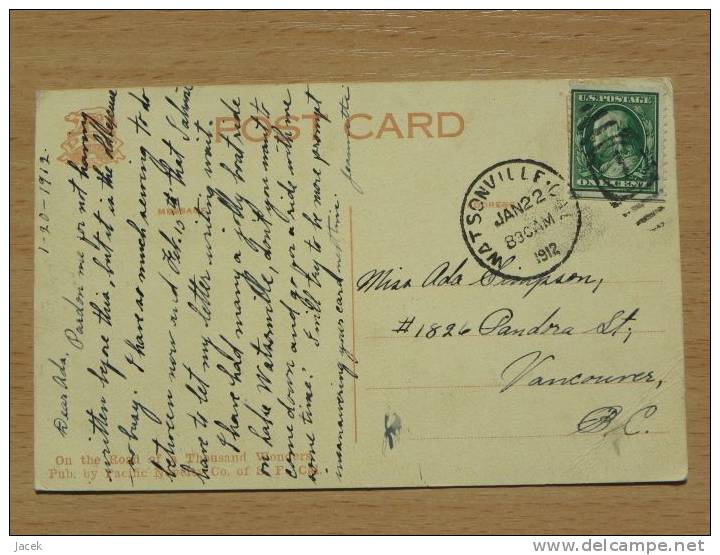 1-20-1912.
Dear Ada,
Pardon me for not having
written before this, but it is the
so busy. I have so much sewing to do
between now and Feb. 15th that I shall
have to let my letter writing wait.
I have had many a jolly boat ride
on Lake Watsonville, don't you want to
come down and go for a ride with me
some time? I will try to be more prompt
in answering your card next time.
POST CARD
MESSAGE
U.S. POSTAGE
ONE CENT
WATSONVILLE, CAL.
JAN 22
830 AM
1912
Miss Ada Simpson,
#1826 Pandora St,
Vancouver,
B.C.
On the Road of a Thousand Wonders
Pub. by Pacific Co. of S. F. Cal.
Jacek
www.delcampe.net